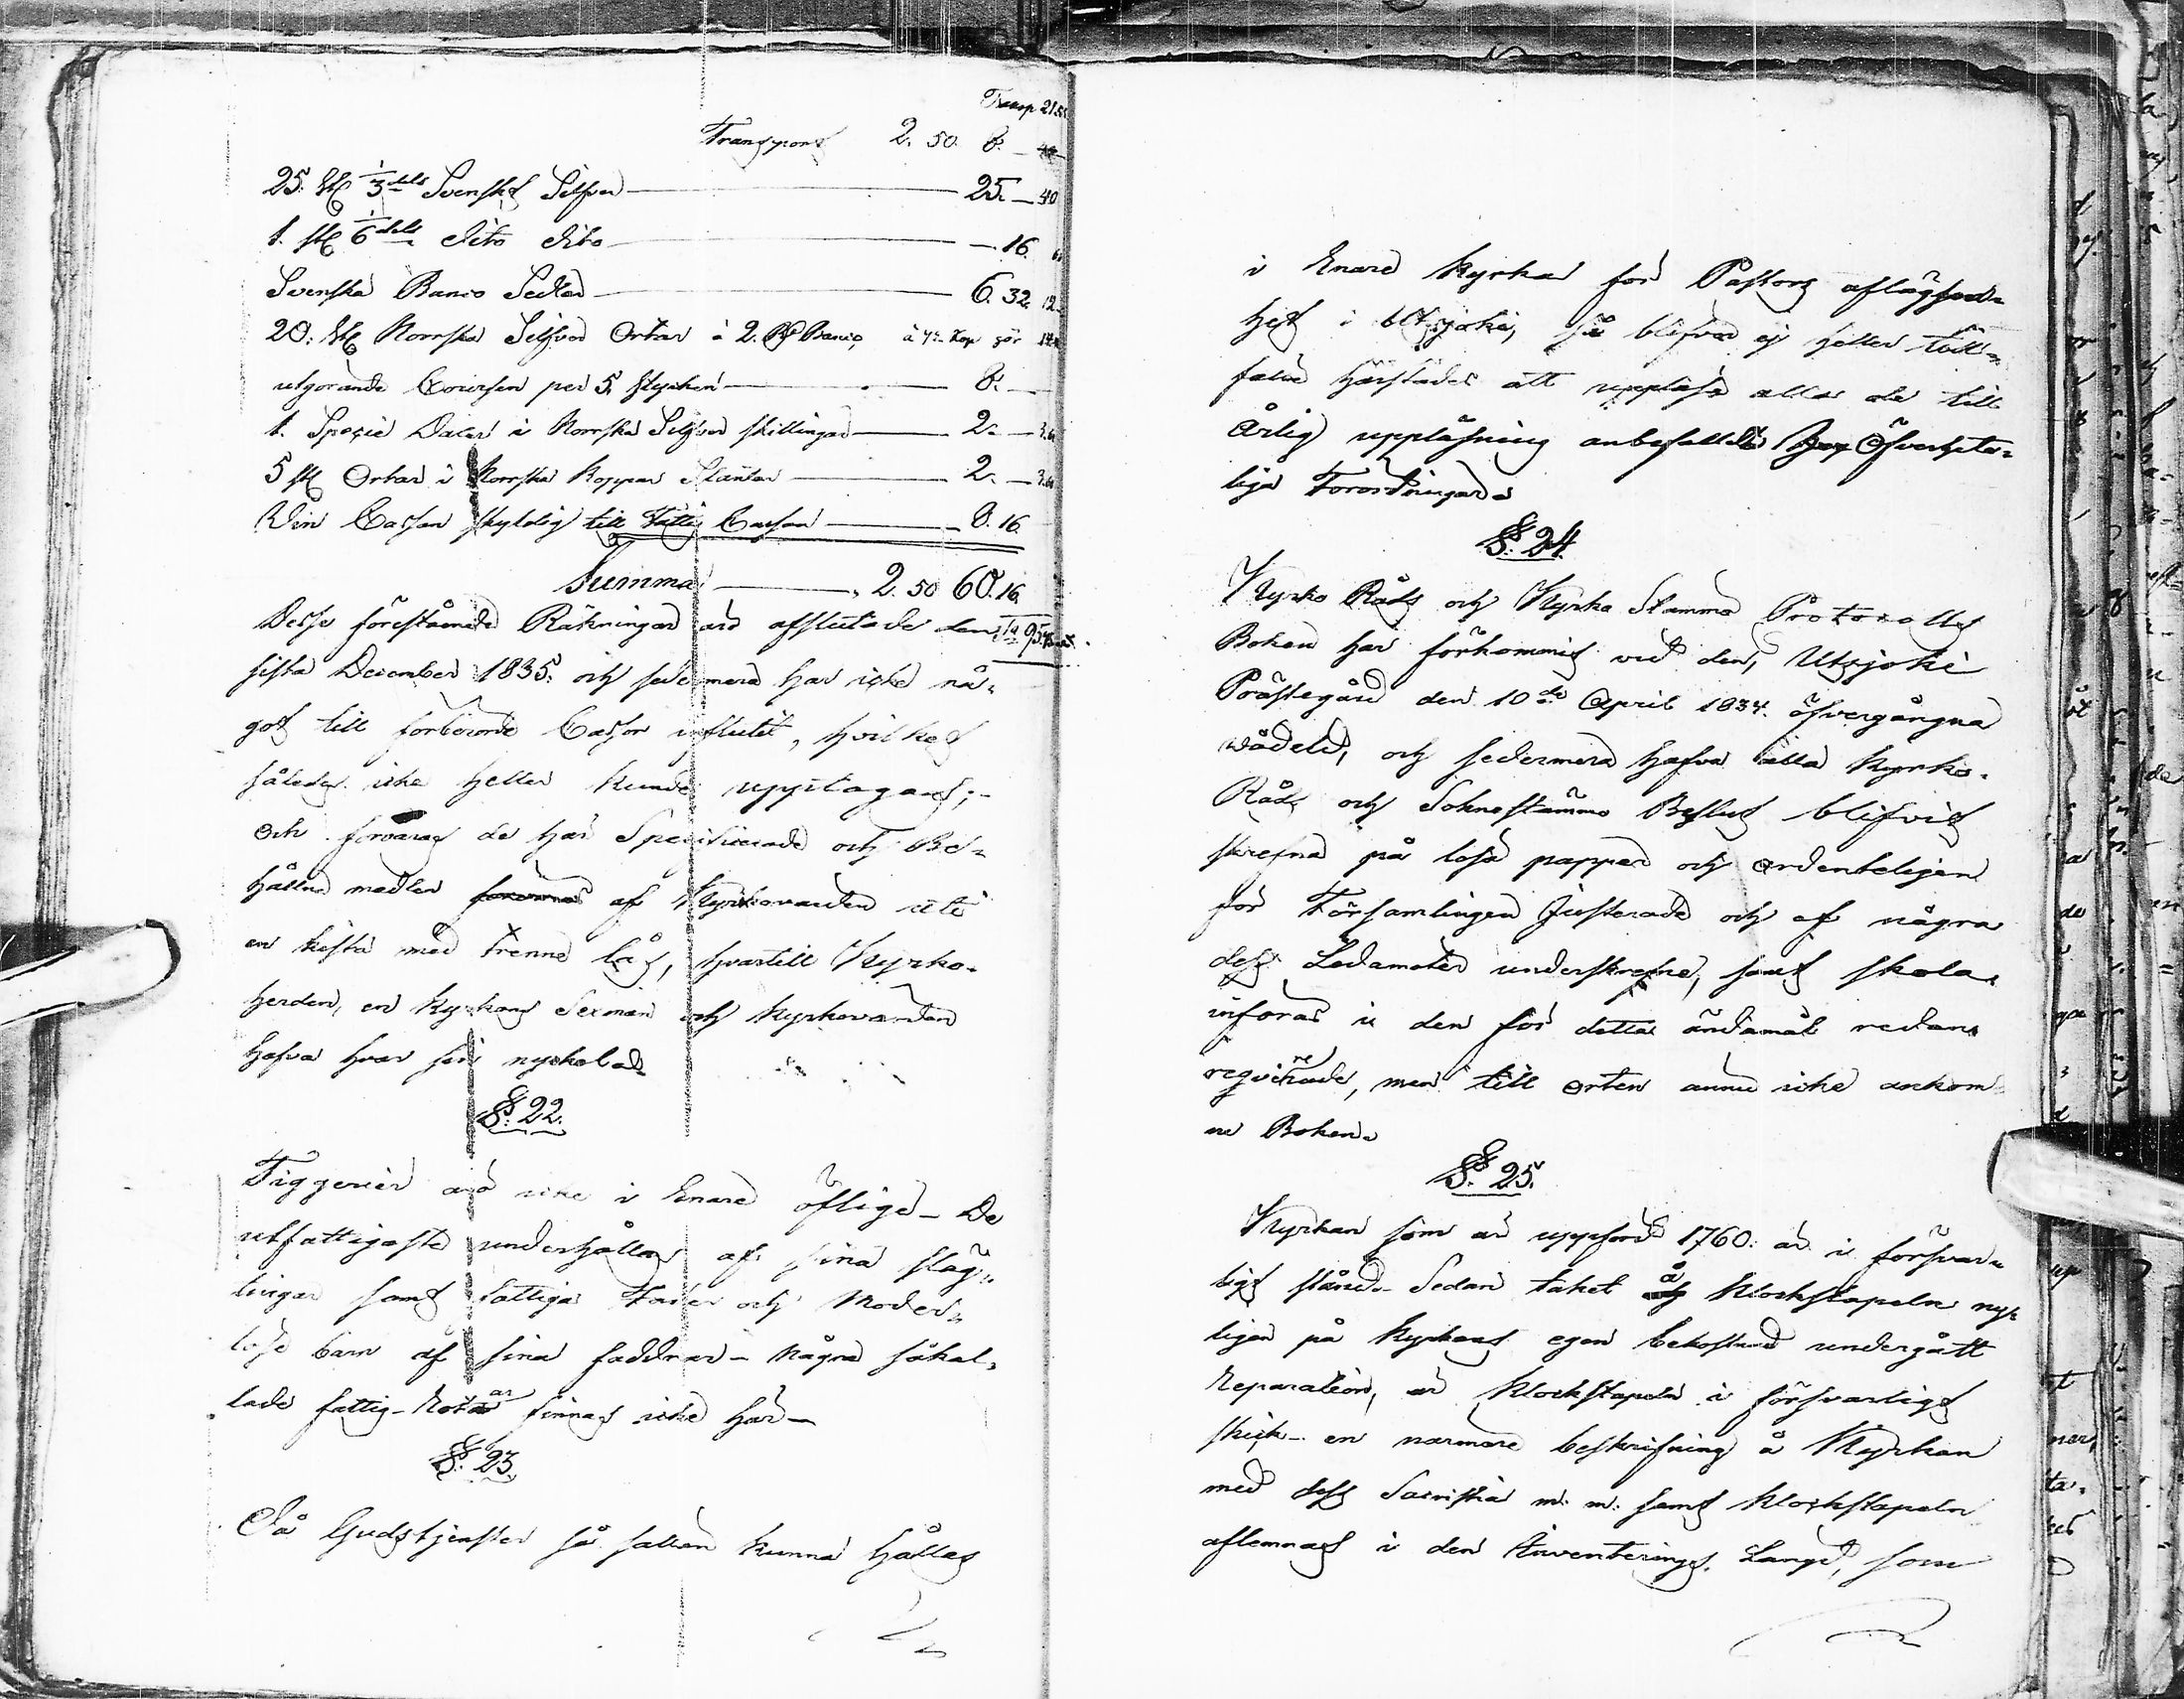 Transp 215
Transport 2. 50. 8. —
25. st 1/3 dels Svenskt Silfver — 25. — 40
1. st 1/6 dels dito dito — — 16.
Svenska Banco Sedlar — 6. 32. 12
20. st Norrska Silfver Ortar à 2. Rd Banco, à 72 Kop gör
utgörande Coursen per 5 stycken — 8. —
1. Specie Daler i Norrska Silfver skillingar — 2. — 3.60
5 st Ortar i Norrska Koppar Slantar — 2. — 3.60
Vin Cassan skyldig till Fattig Cassan — 8. 16.
Summa — 2. 50 60. 16.
Desse förestående Räkningar äro afslutade den
sista December 1835. och sedermera har icke nå-
got till förberörde Cassor influtit, hvilket
således icke heller kunde upptagas;-
Och förvaras de här Specificerade och Be-
hållne medlen af Kyrkovärden uti
en kista med trenne lås, hvartill Kyrko-
herden, en kyrkans Sexman och kyrkovärden
hafva hvar sin nyckel.
§. 22.
Tiggerier äro icke i Enare öflige - De
utfattigaste underhållas af sina släg-
tingar samt fattiga Fader och Moder-
löse barn af sina faddrar - Några såkal-
lade fattig-Rotar finnas icke här -
§. 23.
Då Gudstjenster så sällan kunna hållas
i Enare kyrka för Pastors aflägsen-
het i Utsjoki, så blifver ej heller till-
fälle härstädes att uppläsa alla de till
Årlig uppläsning anbefallde Öfverhete-
liga Förordningar.
§. 24.
Kyrko Råds och Kyrko Stämmo Protocolls
Boken har förkommit vid den, Utsjoki
Prästegård den 10de April 1834. öfvergångna
vådeld, och sedermera hafva alla Kyrko-
Råds och Sockne stämmo Beslut blifvit
skrefna på lösa papper och ordenteligen
för Församlingen Justerade och af några
dess Ledamöter underskrefne, samt skola
införas i den för detta ändamål redan
reqvirerade, men till orten ännu icke ankom-
ne Boken.
§. 25.
Kyrkan som är uppförd 1760. är i försvar-
ligt stånd. Sedan taket å Klockstapeln ny-
ligen på kyrkans egen bekostnad undergått
Reparation, är Klockstapeln i försvarligt
skick - en närmare beskrifning å Kyrkan
med dess Sacristia m. m. samt klockstapeln
aflemnas i den Inventerings Längd, som